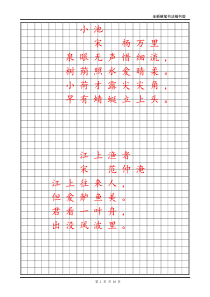 小池
宋 杨万里
泉眼无声惜细流,
树荫照水爱晴柔。
小荷才露尖尖角,
早有蜻蜓立上头。
江上渔者
宋 范仲淹
江上往来人,
但爱鲈鱼美。
君看一叶舟,
出没风波里。